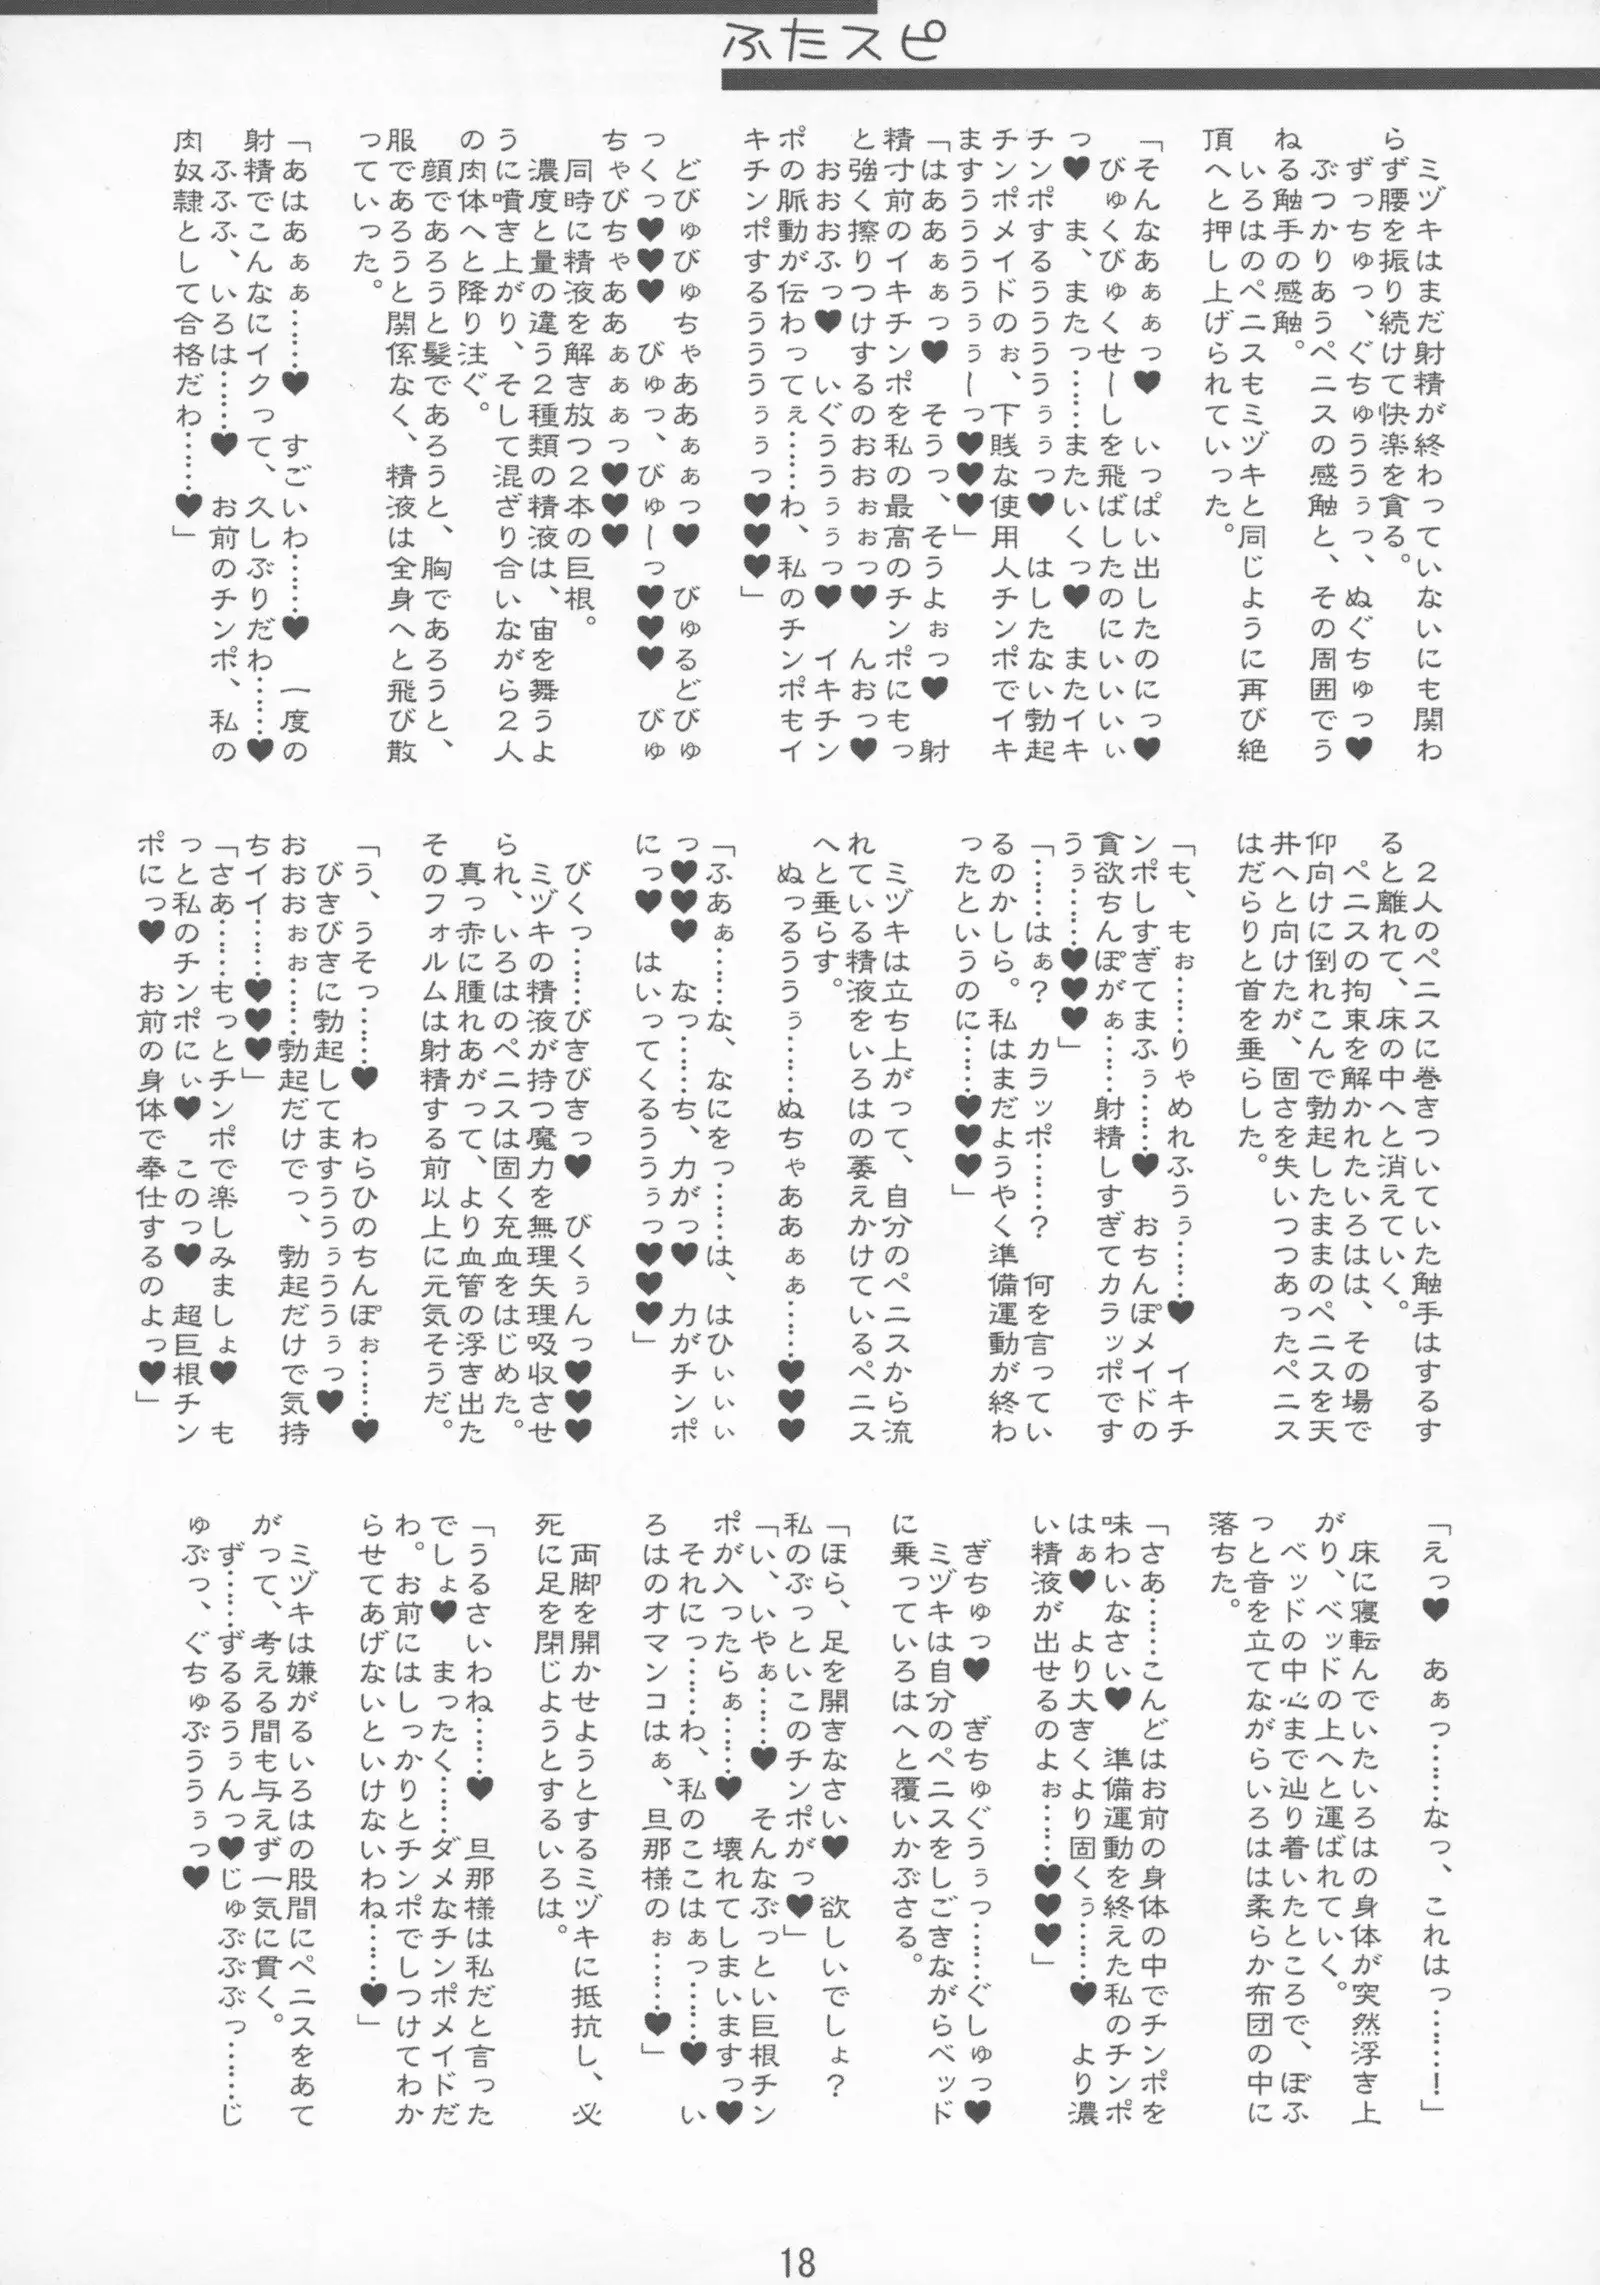 ふたスピ
ミヅキはまだ射精が終わっていないにも関わ
らず腰を振り続けて快楽を貪る。
ずっちゅっ、ぐちゅううぅっ、ぬぐちゅっ♥
ぶつかりあうペニスの感触と、その周囲でう
ねる触手の感触。
いろはのペニスもミヅキと同じように再び絶
頂へと押し上げられていった。
「そんなあぁぁっ♥ いっぱい出したのにっ♥
びゅくびゅくせーしを飛ばしたのにいいいぃ
っ♥ ま、またっ……またいくっ♥ またイキ
チンポするううううぅぅっ♥ はしたない勃起
チンポメイドのぉ、下賎な使用人チンポでイキ
ますうううううぅぅーっ♥♥♥」
「はああぁぁっ♥ そうっ、そうよぉっ♥ 射
精寸前のイキチンポを私の最高のチンポにもっ
と強く擦りつけするのおおぉぉっ♥ んおっ♥
おおおふっ♥ いぐううぅぅっ♥ イキチン
ポの脈動が伝わってぇ……わ、私のチンポもイ
キチンポするうううぅぅっ♥♥♥」
どびゅびゅちゃああぁぁっ♥ びゅるどびゅ
っくっ♥♥♥ びゅっ、びゅーっ♥♥♥ びゅ
ちゃびちゃああぁぁぁっ♥♥♥
同時に精液を解き放つ2本の巨根。
濃度と量の違う2種類の精液は、宙を舞うよ
うに噴き上がり、そして混ざり合いながら2人
の肉体へと降り注ぐ。
顔であろうと髪であろうと、胸であろうと、
服であろうと関係なく、精液は全身へと飛び散
っていった。
「あはあぁぁ……♥ すごいわ……♥ 一度の
射精でこんなにイクって、久しぶりだわ……♥
ふふふ、いろは……♥ お前のチンポ、私の
肉奴隷として合格だわ……♥」
2人のペニスに巻きついていた触手はするす
ると離れて、床の中へと消えていく。
ペニスの拘束を解かれたいろはは、その場で
仰向けに倒れこんで勃起したままのペニスを天
井へと向けたが、固さを失いつつあったペニス
はだらりと首を垂らした。
「も、もぉ……りゃめれふうぅ……♥ イキチ
ンポしすぎてまふぅ……♥ おちんぽメイドの
貪欲ちんぽがぁ……射精しすぎてカラッポです
うぅ……♥♥♥」
「……はぁ? カラッポ……? 何を言ってい
るのかしら。私はまだようやく準備運動が終わ
ったというのに……♥♥♥」
ミヅキは立ち上がって、自分のペニスから流
れている精液をいろはの萎えかけているペニス
へと垂らす。
ぬっるうぅ……ぬちゃああぁぁ……♥♥♥
「ふあぁ……な、なにをっ……は、はひぃぃぃ
っ♥♥♥ なっ……ち、力がっ♥ 力がチンポ
にっ♥ はいってくるううぅっ♥♥♥」
びくっ……びきびきっ♥ びくぅんっ♥♥♥
ミヅキの精液が持つ魔力を無理矢理吸収させ
られ、いろはのペニスは固く充血をはじめた。
真っ赤に腫れあがって、より血管の浮き出た
そのフォルムは射精する前以上に元気そうだ。
「う、うそっ……♥ わらひのちんぽぉ……♥
びきびきに勃起してますううぅううぅっ♥
おおおぉぉ……勃起だけでっ、勃起だけで気持
ちイイ……♥♥♥」
「さあ……もっとチンポで楽しみましょ♥ も
っと私のチンポにぃ♥ このっ♥ 超巨根チン
ポにっ♥ お前の身体で奉仕するのよっ♥」
「えっ♥ あぁっ……なっ、これはっ……！」
床に寝転んでいたいろはの身体が突然浮き上
がり、ベッドの上へと運ばれていく。
ベッドの中心まで辿り着いたところで、ぼふ
っと音を立てながらいろはは柔らか布団の中に
落ちた。
「さあ……こんどはお前の身体の中でチンポを
味わいなさい♥ 準備運動を終えた私のチンポ
はぁ♥ より大きくより固くぅ……♥ より濃
い精液が出せるのよぉ……♥♥♥」
ぎちゅっ♥ ぎちゅぐうぅっ……ぐしゅっ♥
ミヅキは自分のペニスをしごきながらベッド
に乗っていろはへと覆いかぶさる。
「ほら、足を開きなさい♥ 欲しいでしょ？
私のぶっといこのチンポがっ♥」
「い、いやぁ……♥ そんなぶっとい巨根チン
ポが入ったらぁ……♥ 壊れてしまいますっ♥
それにっ……わ、私のここはぁっ……♥ い
ろはのオマンコはぁ、旦那様のぉ……♥」
両脚を開かせようとするミヅキに抵抗し、必
死に足を閉じようとするいろは。
「うるさいわね……♥ 旦那様は私だと言った
でしょ♥ まったく……ダメなチンポメイドだ
わ。お前にはしっかりとチンポでしつけてわか
らせてあげないといけないわね……♥」
ミヅキは嫌がるいろはの股間にペニスをあて
がって、考える間も与えず一気に貫く。
ず……ずるるうぅんっ♥じゅぶぶぶっ……じ
ゅぶっ、ぐちゅぶううぅっ♥
18